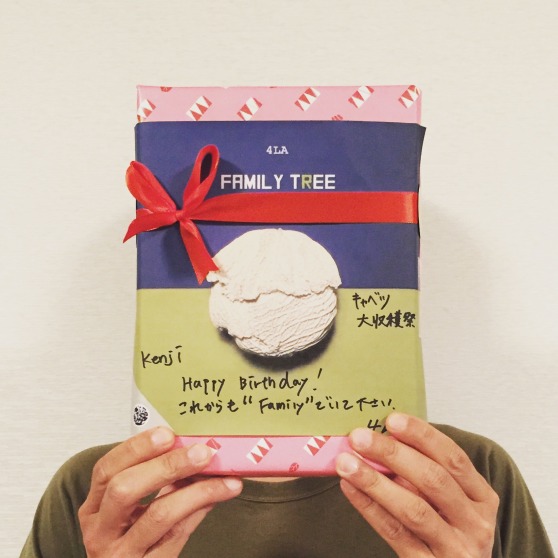 4LA
FAMILY TREE
キャベツ
大収穫祭
Kenji
Happy Birthday!
これからも"Family"でいて下さい.